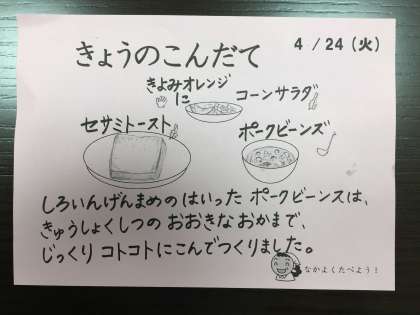 きょうのこんだて
4/24(火)
きよみオレンジ
に
コーンサラダ
セサミトースト
ポークビーンズ
しろいんげんまめのはいった ポークビーンズは、
きゅうしょくしつの おおきなおかまで、
じっくり コトコトにこんでつくりました。
なかよくたべよう!